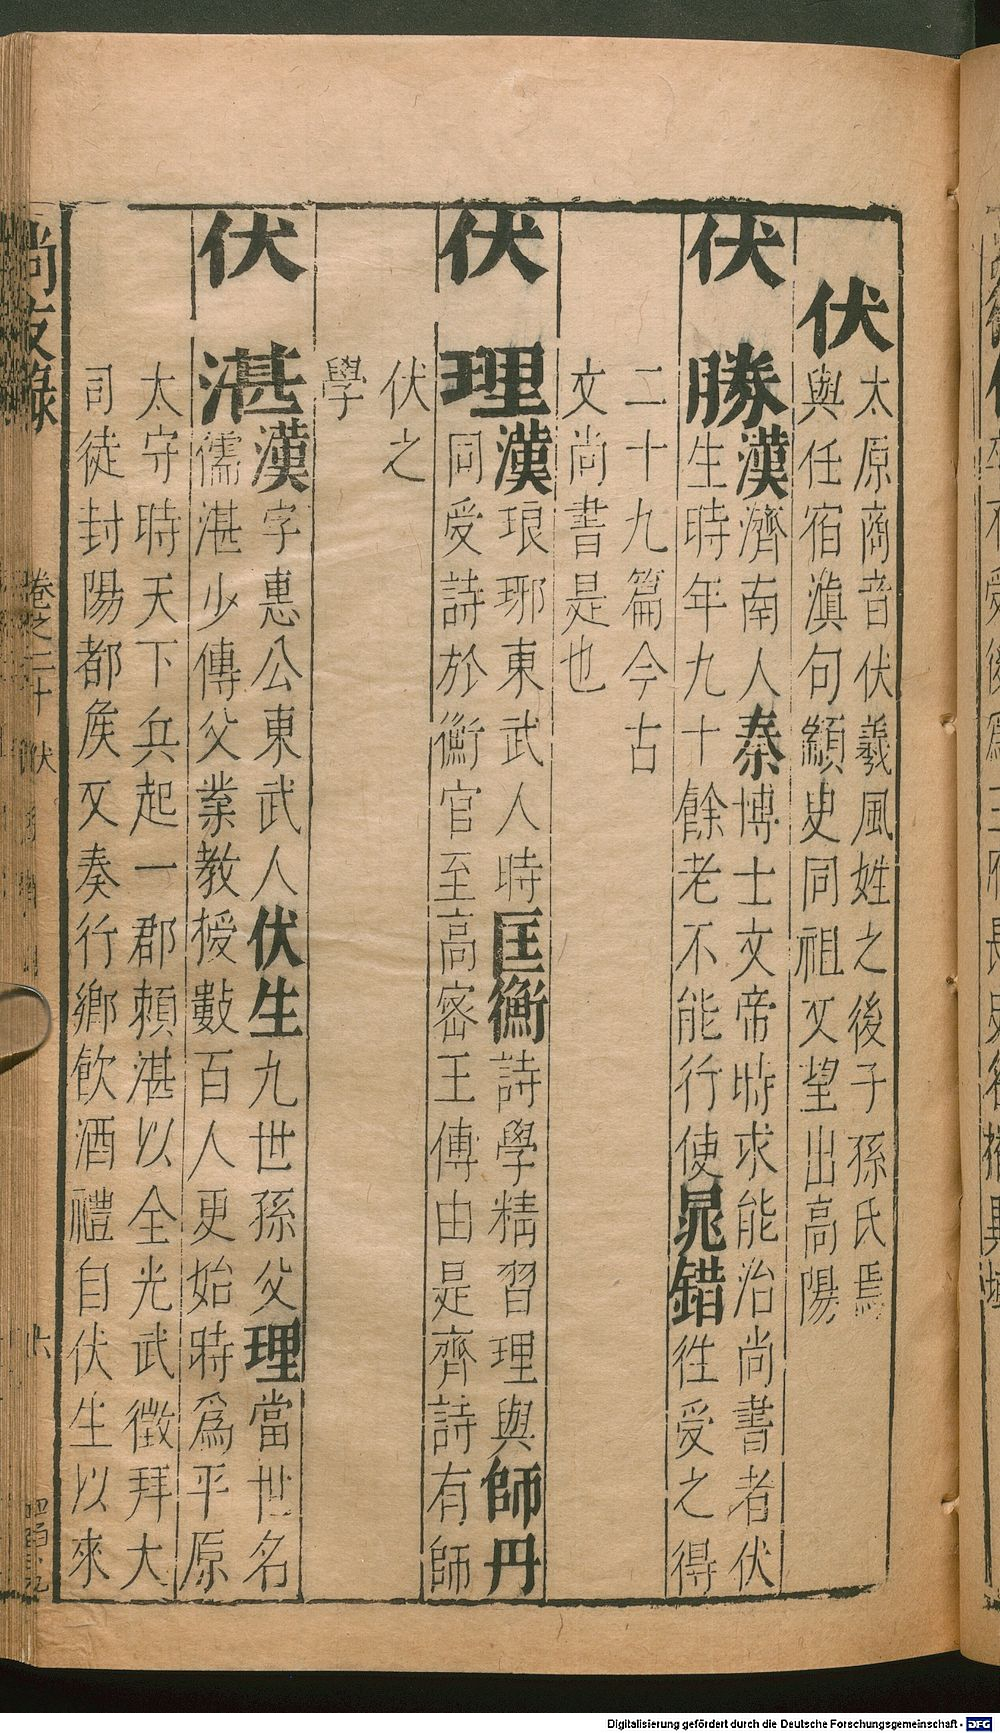 伏
太原商音伏羲風姓之後子孫氏焉
與任宿滇句顓㬰同祖又望出高陽
伏勝漢濟南人秦博士文帝時求能治尚書者伏
生時年九十餘老不能行使晁錯徃受之得
二十九篇今古
文尚書是也
伏理漢琅琊東武人時匡衡詩學精習理與師丹
同受詩於衡官至高密王傅由是齊詩有師
伏之
學
伏湛漢字惠公東武人伏生九世孫父理當世名
儒湛少傳父業教授數百人更始時爲平原
太守時天下兵起一郡賴湛以全光武徵拜大
司徒封陽都矦又奏行鄉飲酒禮自伏生以來
尚友錄 卷之二十 伏 六
Digitalisierung gefördert durch die Deutsche Forschungsgemeinschaft - DFG